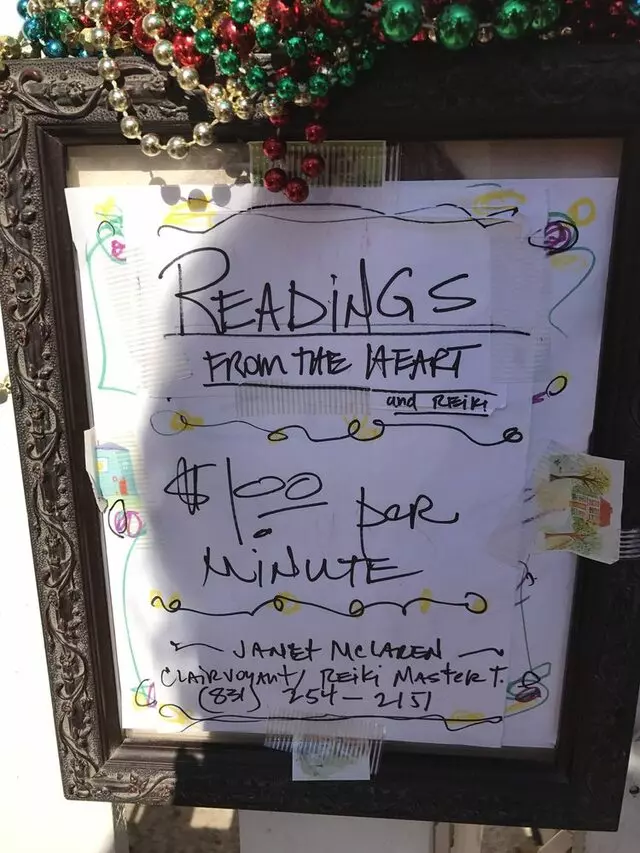 READINGS
FROM THE HEART
and REIKI
$1.00 per
MINUTE
JANET McLAREN
CLAIRVOYANT/ REIKI MASTER T.
(831) 254-2151